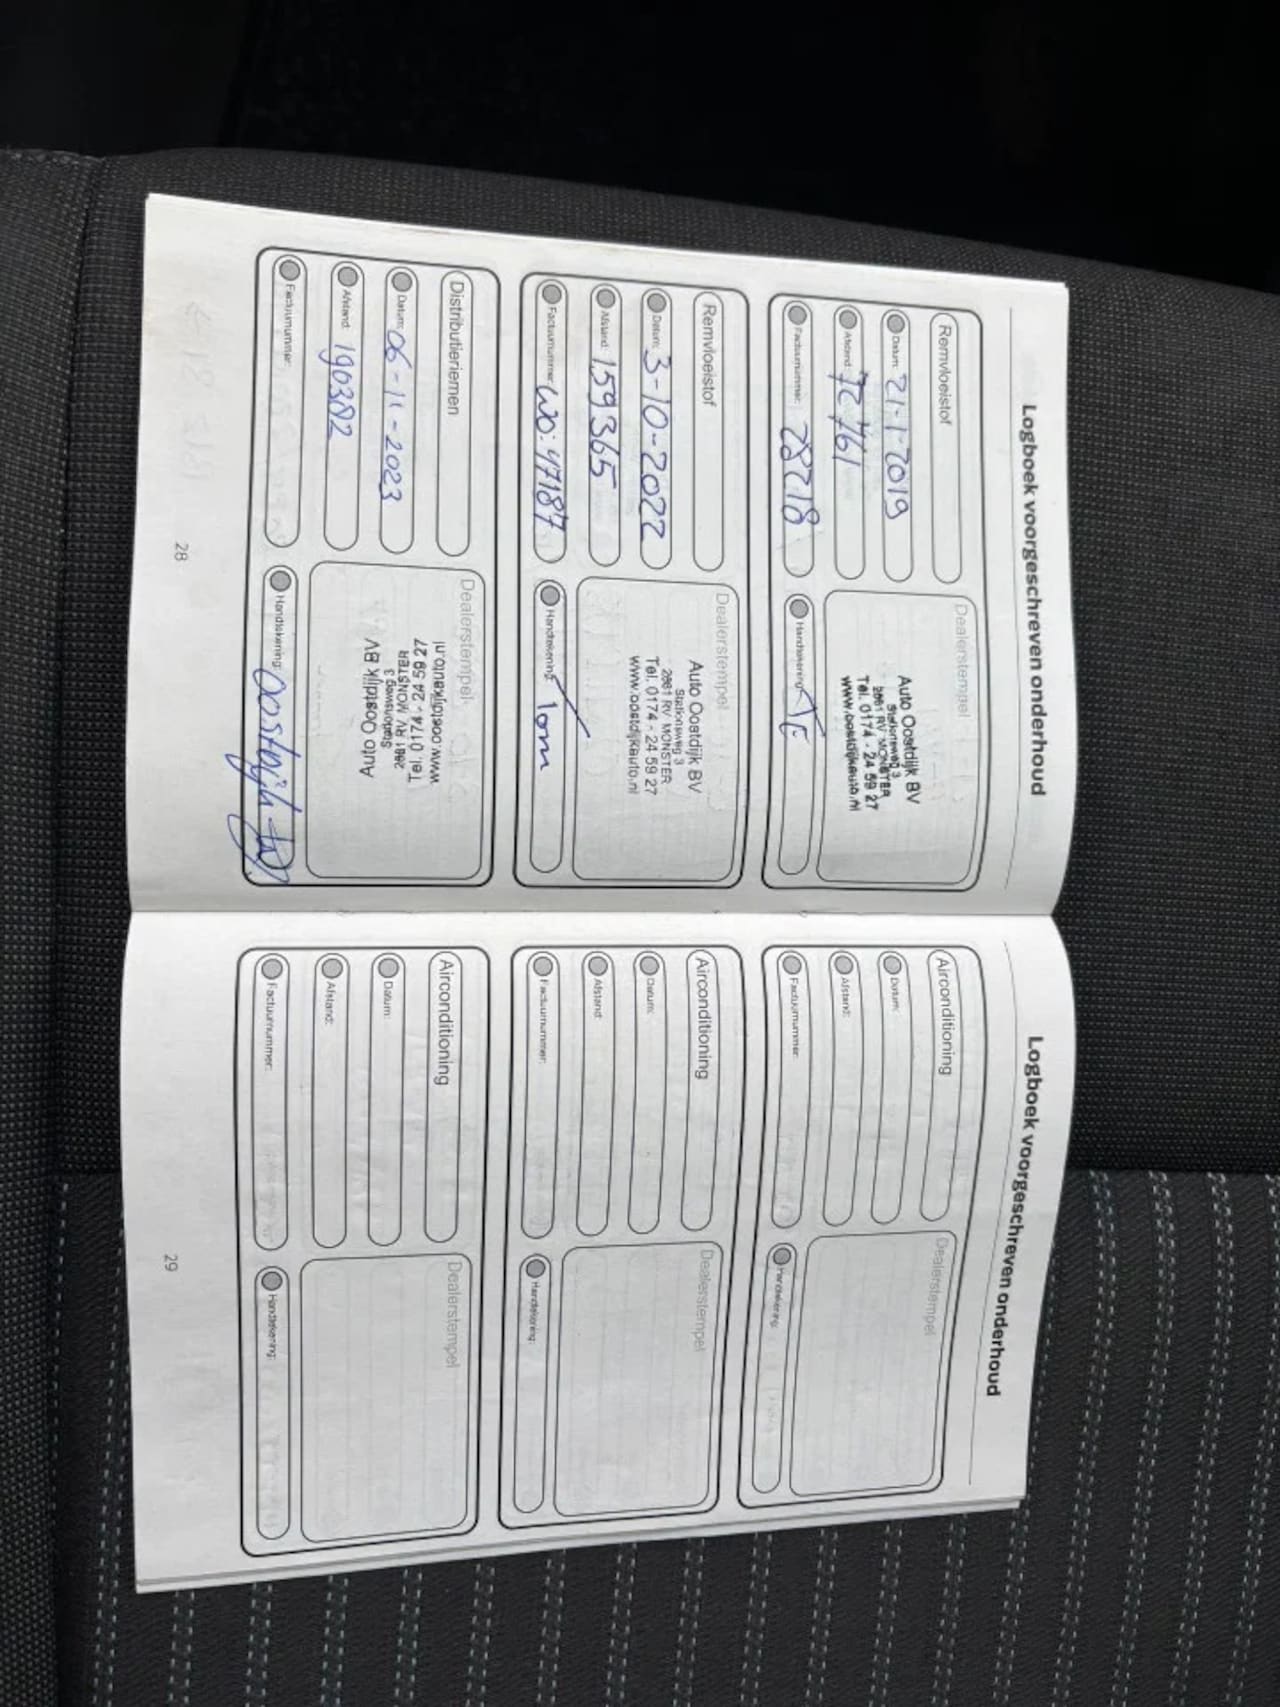 Logboek voorgeschreven onderhoud
Remvloeistof
Datum: 21-1-2019
Afstand: 72761
Factuurnummer: 28218
Dealerstempel
Auto Oostdijk BV
Stationsweg 3
2681 RV MONSTER
Tel. 0174 - 24 59 27
www.oostdijkauto.nl
Handtekening:
Remvloeistof
Datum: 3-10-2022
Afstand: 159365
Factuurnummer: WO: 47187
Dealerstempel
Auto Oostdijk BV
Stationsweg 3
2681 RV MONSTER
Tel. 0174 - 24 59 27
www.oostdijkauto.nl
Handtekening: Tom
Distributieriemen
Datum: 06-11-2023
Afstand: 190382
Factuurnummer:
Dealerstempel
Auto Oostdijk BV
Stationsweg 3
2681 RV MONSTER
Tel. 0174 - 24 59 27
www.oostdijkauto.nl
Handtekening: Oostdijk
28
Logboek voorgeschreven onderhoud
Airconditioning
Datum:
Afstand:
Factuurnummer:
Dealerstempel
Handtekening:
Airconditioning
Datum:
Afstand:
Factuurnummer:
Dealerstempel
Handtekening:
Airconditioning
Datum:
Afstand:
Factuurnummer:
Dealerstempel
Handtekening:
29